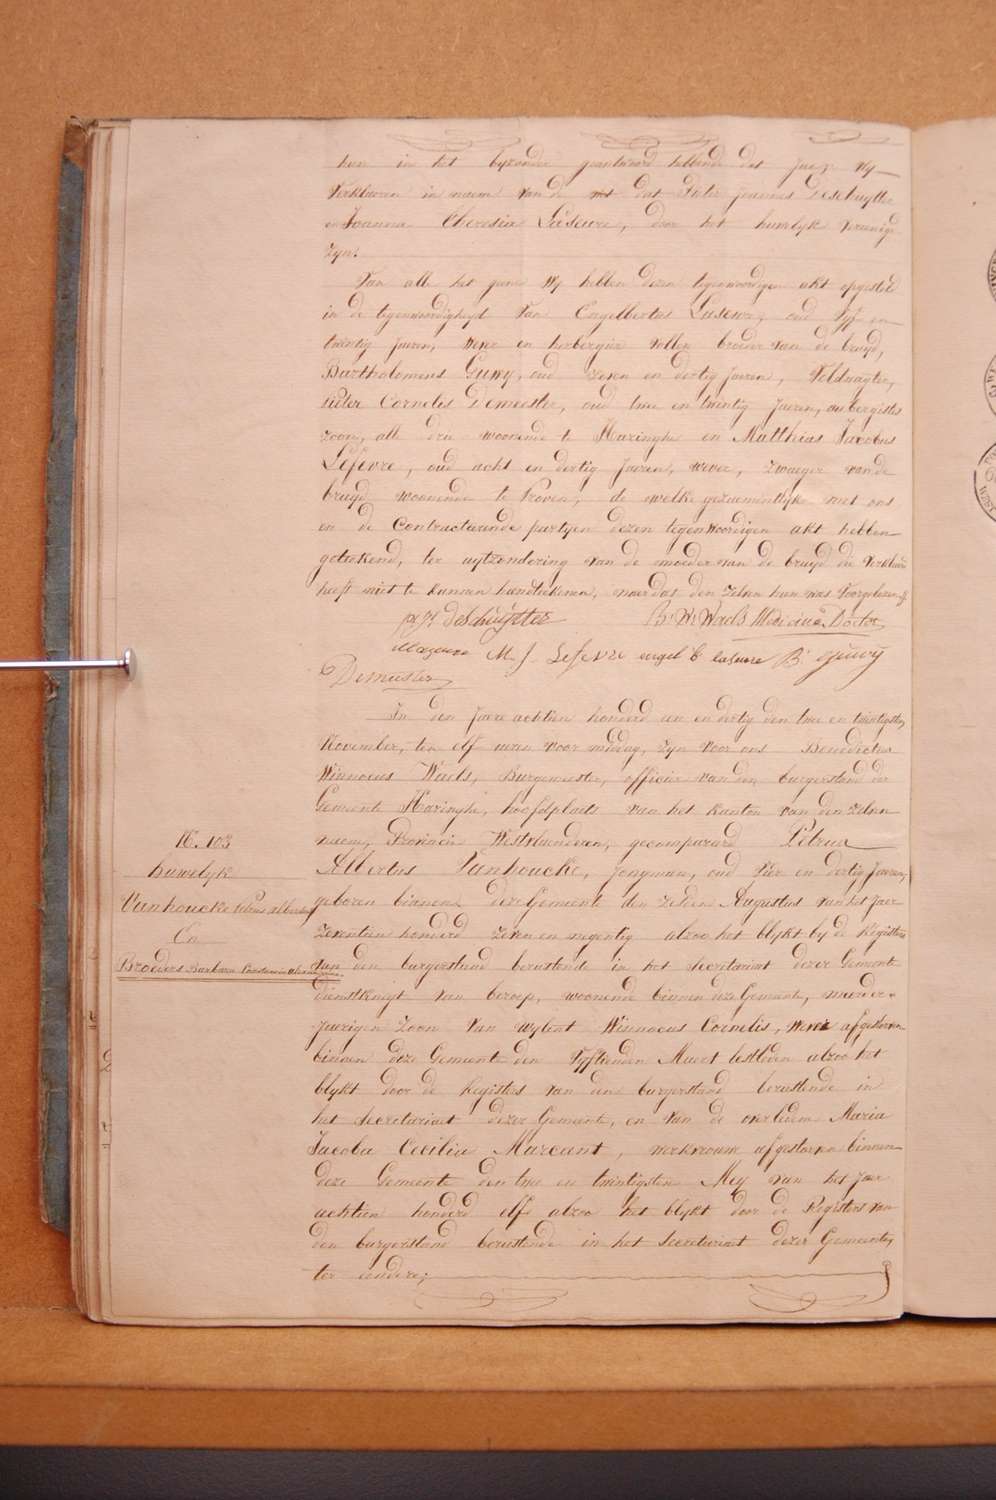 hun in het byzonder geantwoord hebbende dat jaer wy
Verklaeren in naem van de wet dat Pieter Joannes Deschuytter
en Joanna Theresia Laseure, door het huwelyk vereenigd
zyn.
Van alle het gene wy hebben dezen tegenwoordigen akt opgesteld
in de tegenwoordigheyd van Engelbertus Laseure, oud Vyf en
twintig jaeren, wever en herbergier vollen broeder van de bruyd,
Bartholomeus Guwy, oud zeven en dertig jaeren, Veldwagter,
Pieter Cornelis Demeester, oud twee en twintig jaeren, herbergiers
zoon, alle drie woonende te Haringhe en Matthias Jacobus
Lefevre, oud acht en dertig jaeren, wever, zwaeger van de
bruyd woonende te Proven, de welke gezaementlyk met ons
en de Contracteerende partyen dezen tegenwoordigen akt hebben
geteekend, ter uytzondering van de moeder van de bruyd die verklaerd
heeft niet te kunnen handteekenen, naerdat den zelven hun was Voorgelezen
p j deschuÿtter B. W. Waels Medicine Doctor
M. J. Lefevre engel b laseure B. guwÿ
Demeester
In den Jaere achtien honderd een en dertig den twee en twintigsten
November, ten elf uren voor middag, zyn voor ons Benedictus
Winnocus Waels, Burgemeester, officier van den burgerstand der
Gemeente Haringhe, hoofdplaets van het kanton van den zelven
naem, Provincie Westvlaenderen, gecompareerd Petrus
N. 103
Albertus Vanhoucke, jongman, oud Vier en dertig Jaeren,
huwelyk
geboren binnen deze Gemeente den Augustus van het jaer
Vanhoucke petrus albertus
zeventien honderd zeven en negentig alzoo het blykt by de Registers
En
van den burgerstand berustende in het Secretariaet dezer Gemeente
Broeders Barbara Constantia
dienstknegt van beroep, woonende binnen deze Gemeente, meerder
jaerigen zoon van wylent Winnocus Cornelis, wever afgestorven
binnen deze Gemeente den Vyftienden Maert lestleden alzoo het
blykt door de Registers van den burgerstand berustende in
het Secretariaet dezer Gemeente, en van de overledene Maria
Jacoba Cecilia Marcant, werkvrouw afgestorven binnen
deze Gemeente den twee en twintigsten Mey van het jaer
achtien honderd elf alzoo het blykt door de Registers van
den burgerstand berustende in het Secretariaet dezer Gemeente,
ter eendere;